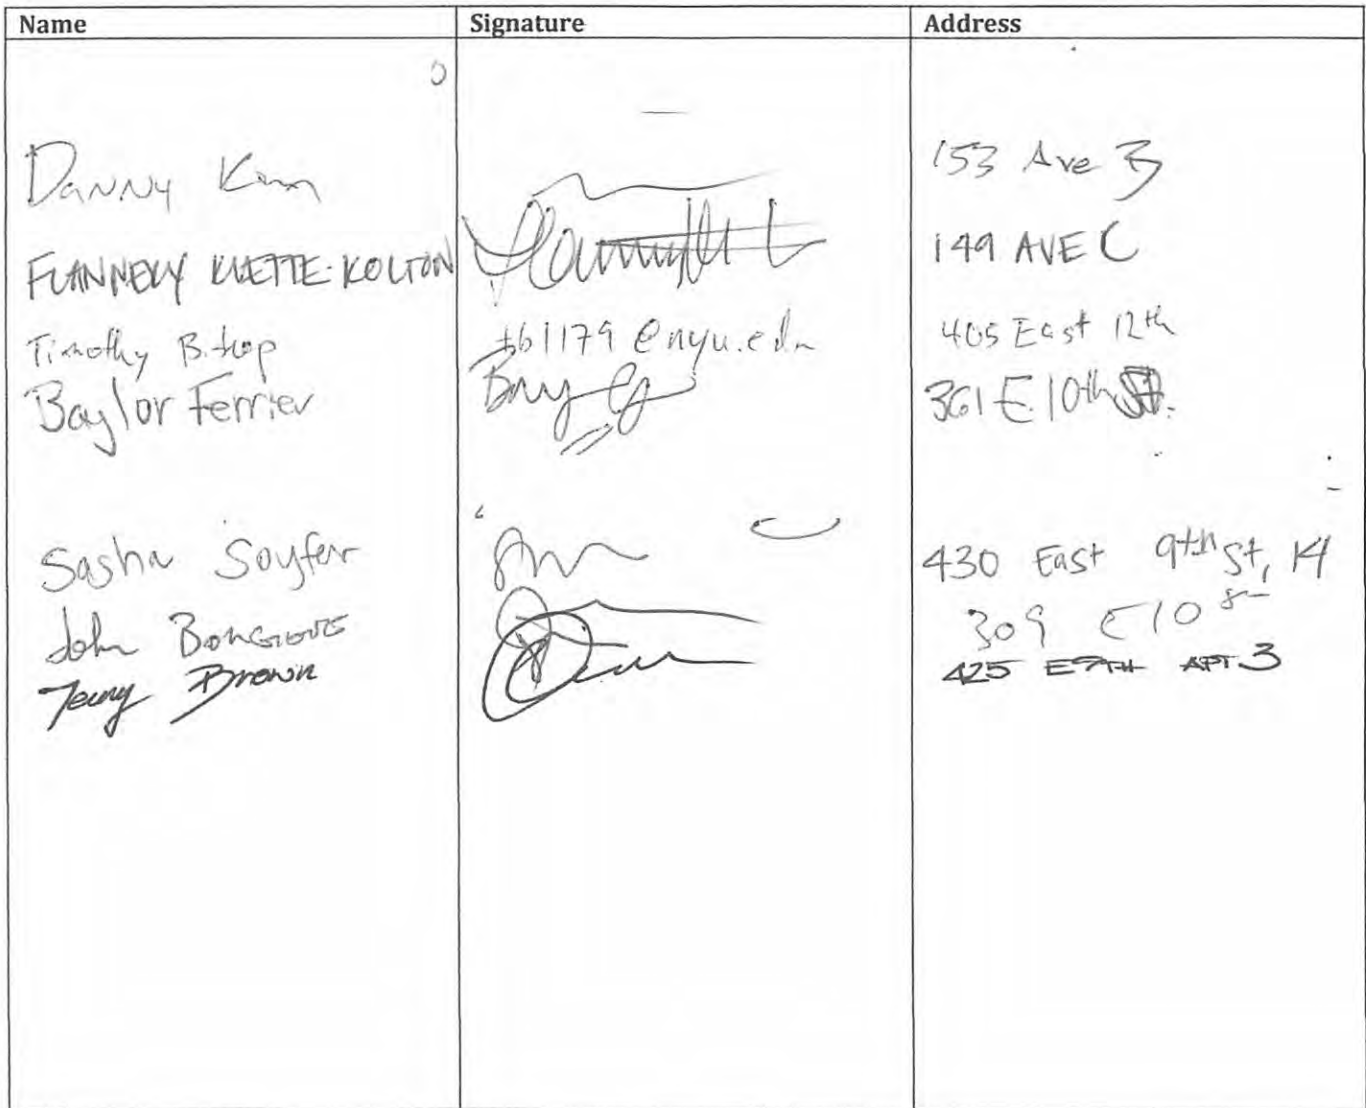 Name Signature Address
Danny Kim 153 Ave B
FLANNERY KLETTE-KOLTON 149 AVE C
Timothy Bishop tb1179@nyu.edu 405 East 12th
Baylor Ferrier 361 E. 10th St.
Sasha Soyfer 430 East 9th St, 14
John Bongiovi 309 E 10 St
Brown 425 E 9TH APT 3